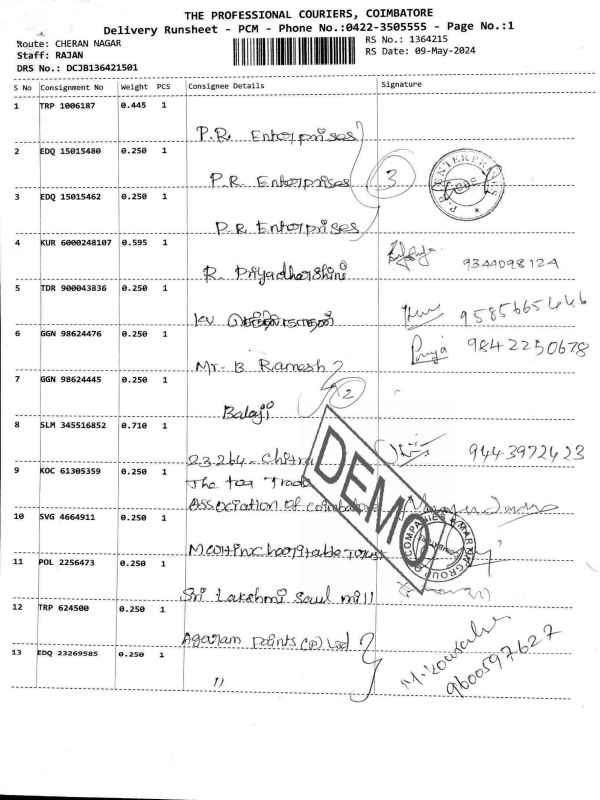 THE PROFESSIONAL COURIERS, COIMBATORE
Delivery Runsheet - PCM - Phone No.:0422-3505555 - Page No.:1
Route: CHERAN NAGAR
RS No.: 1364215
Staff: RAJAN
RS Date: 09-May-2024
DRS No.: DCJB136421501
S No Consignment No Weight PCS Consignee Details Signature
1 TRP 1006187 0.445 1
P.R. Enterprises
2 EDQ 15015480 0.250 1
P.R. Enterprises 3
P.R ENTERPRISES CBE
3 EDQ 15015462 0.250 1
P.R. Enterprises
4 KUR 6000248107 0.595 1
R. Priyadharshini 9344098124
5 TDR 900043836 0.250 1
KV 9585665446
6 GGN 98624476 0.250 1
Mr. B Ramesh Priya 9842250678
7 GGN 98624445 0.250 1
Balaji 2
8 SLM 345516852 0.710 1
23264 - Chitra 9443972423
9 KOC 61305359 0.250 1
The tea Trade
Association of coimbatore
DEMO
10 SVG 4664911 0.250 1
COMPANIES MARTIN GROUP
Martin charitable Trust
11 POL 2256473 0.250 1
Sri Lakshmi Saul mill
12 TRP 624500 0.250 1
Agaram paints (P) Ltd
13 EDQ 23269585 0.250 1
11
M. Kousalya
9600597627